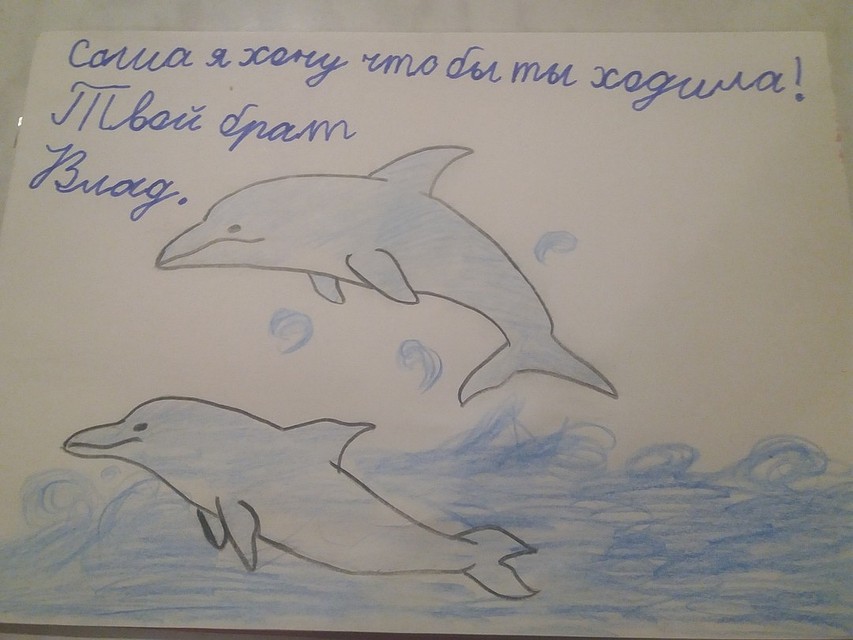 Саша я хочу что бы ты ходила!
Твой брат
Влад.